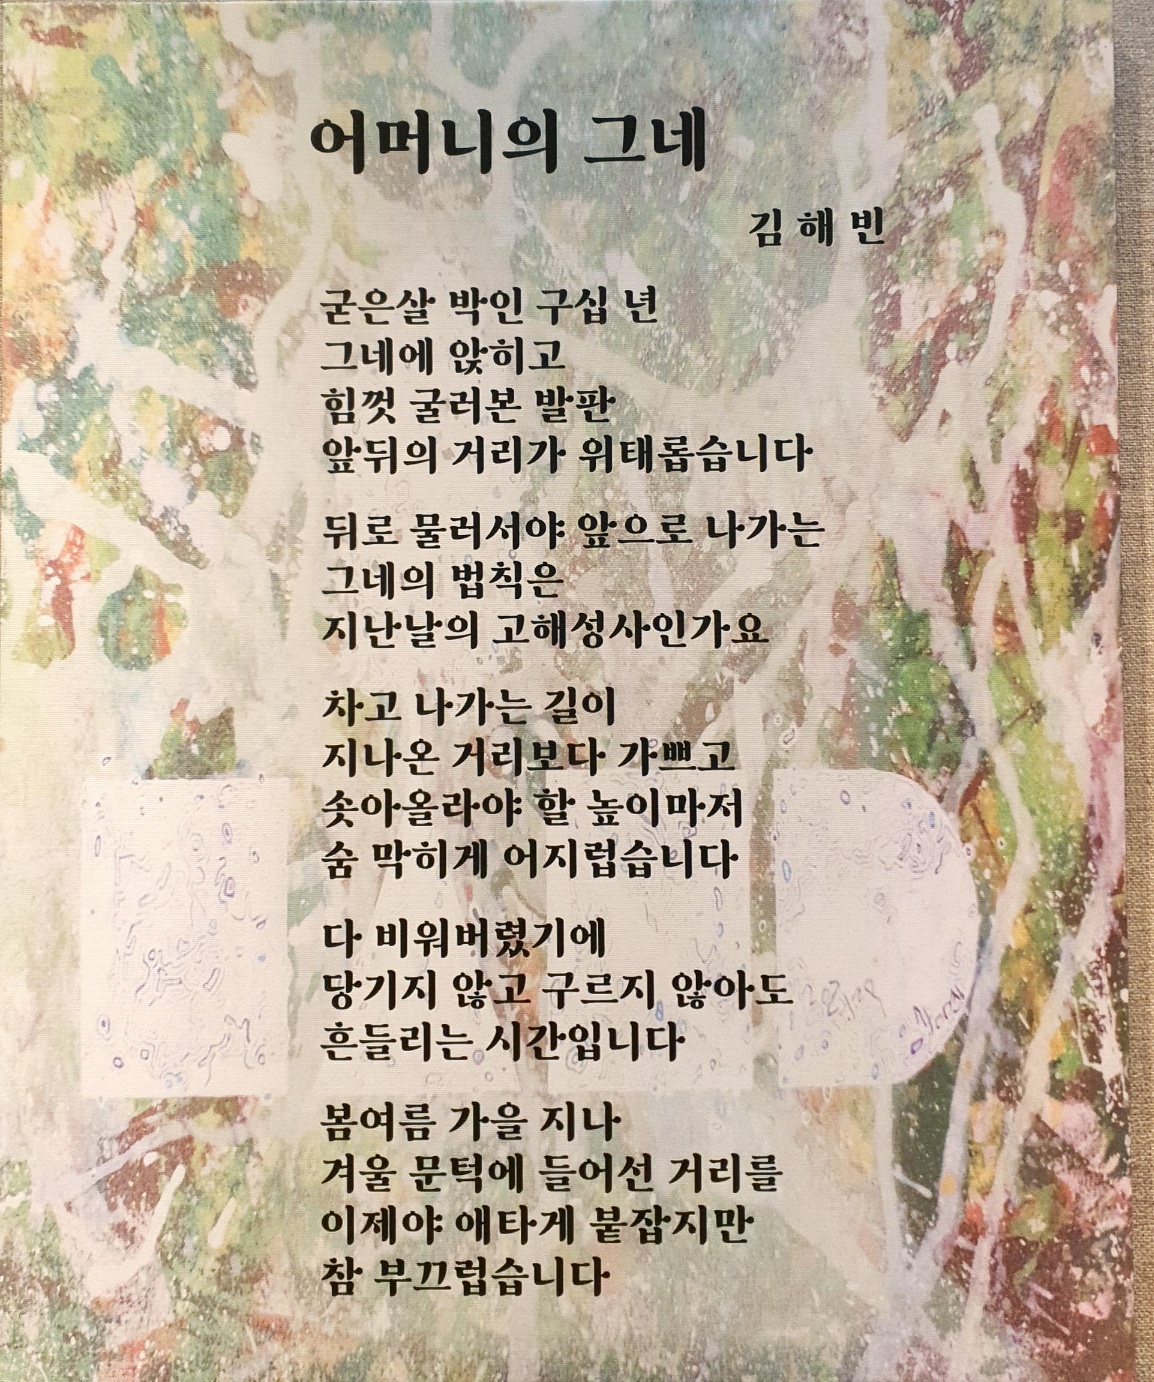 어머니의 그네
김해빈
굳은살 박인 구십 년
그네에 앉히고
힘껏 굴러본 발판
앞뒤의 거리가 위태롭습니다
뒤로 물러서야 앞으로 나가는
그네의 법칙은
지난날의 고해성사인가요
차고 나가는 길이
지나온 거리보다 가쁘고
솟아올라야 할 높이마저
숨 막히게 어지럽습니다
다 비워버렸기에
당기지 않고 구르지 않아도
흔들리는 시간입니다
봄여름 가을 지나
겨울 문턱에 들어선 거리를
이제야 애타게 붙잡지만
참 부끄럽습니다